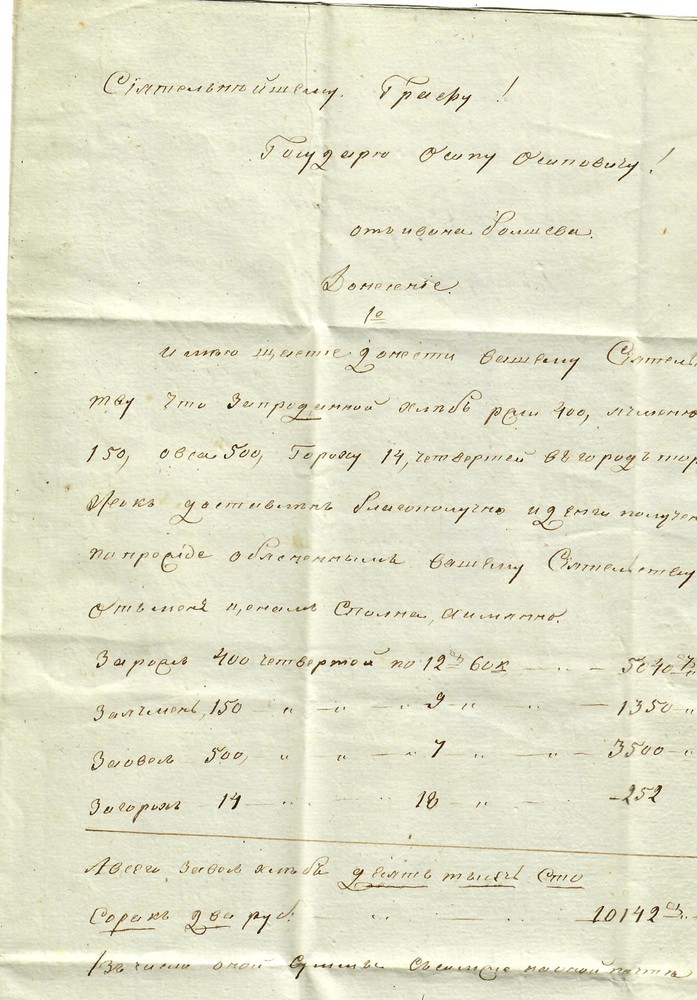 Сіятельнюйшему. Графу!
Государю Осипу Осиповичу!
отъ ивана
Донесеніе.
1е
имѣю щастіе донести вашему Сіятель
тву что Запроданной хлѣбъ ржи 400, ячменю
150, овса 500, Гороху 14, четвертей въ городъ
доставленъ благополучно и денги получен
попрежде объясненнымъ вашему Сіятельству
отъ меня ценамъ Сполна, а имянно.
За рожь 400 четвертой по 12 60к — 5040
За ячмень, 150 — „ — „ — 9 — „ — 1350 „
За овесъ 500, „ „ — 7 „ — „ — 3500 „
За горохъ 14 — „ — 18 — „ — 252
А всего За весь хлѣбъ десять тысячъ Сто
Сорокъ два руб: — „ — 10142
Изъ числа оной Суммы Съ